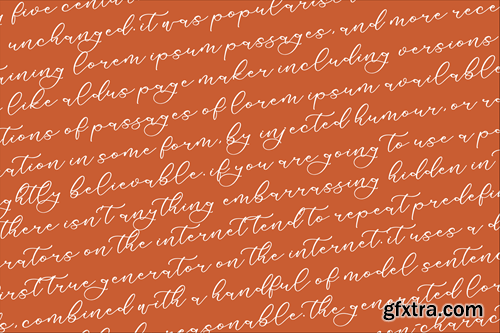 five centur
unchanged. it was popularise
aining lorem ipsum passages, and more rece
like aldus page maker including versions
tions of passages of lorem ipsum available
ration in some form, by injected humour, or r
ghtly believable. if you are going to use a p
there isn't anything embarrassing hidden in
rators on the internet tend to repeat predefi
irst true generator on the internet. it uses a d
combined with a handful of model senten
reasonable. the generated lor
non-charact
gfxtra.com